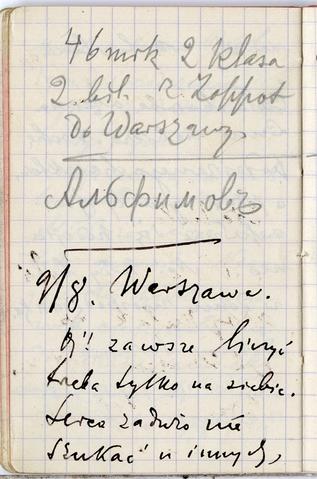 46 mrk 2 klasa
2. bil. z Zoppot
do Warszawy
Альфимовъ
9/8. Warszawa.
Oj!! zawsze liczyć
trzeba tylko na siebie.
Serca zadużo nie
szukać u innych,